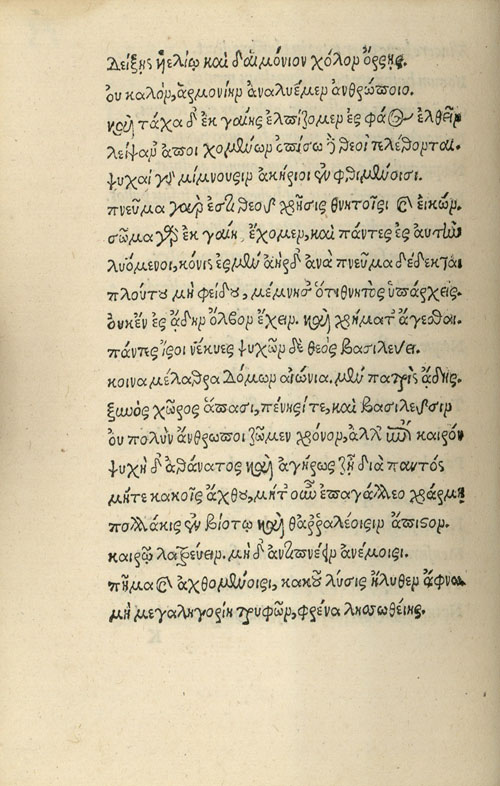 Δείξῃς ἠελίῳ καὶ δαιμόνιον χόλον ὄρσῃς.
ὀυ καλὸν, ἁρμονίην ἀναλυέμεν ἀνθρώποιο.
καὶ τάχα δ' ἐκ γαίης ἐλπίζομεν ἐς φάος ἐλθεῖν
λείψαν' ἀποιχομένων ὀπίσω δὲ θεοὶ τελέθονται.
ψυχαὶ γὰρ μίμνουσιν ἀκήριοι ἐν φθιμένοισι.
πνεῦμα γὰρ ἐστι θεοῦ χρῆσις θνητοῖσι καὶ ἐικών.
σῶμα γὰρ ἐκ γαίης ἔχομεν, καὶ πάντες ἐς αυτὴν
λυόμενοι, κόνις ἐσμὲν ἀὴρ δ' ἀνὰ πνεῦμα δέδεκται
πλούτου μὴ φείδου, μέμνησ' ὅτι θνητὸς ὑπάρχεις.
ὀυκ ἐν ἐς ἅδην ὄλβον ἔχειν. καὶ χρήματ' ἄγεσθαι.
πάντες ἴσοι νέκυες ψυχῶν δὲ θεὸς βασιλεύει.
κοινὰ μέλαθρα δόμων αἰώνια. μὲν πατρὶς ἅδης.
ξυνὸς χῶρος ἅπασι, πένησί τε, καὶ βασιλεῦσιν
ὀυ πολὺν ἄνθρωποι ζῶμεν χρόνον, ἀλλ' ἐπὶ καιρόν
ψυχὴ δ' ἀθάνατος καὶ ἀγήρως ζῇ διὰ παντός
μήτε κακοῖς ἄχθου, μήτ' οὖν ἐπαγάλλεο χάρμῃ
πολλάκις ἐν βιότῳ καὶ θαῤῥαλέοισιν ἄπιστον.
καιρῷ λατρεύειν. μὴ δ' ἀντιπνέειν ἀνέμοισι.
πῆμα καὶ ἀχθομένοισι, κακοῦ λύσις ἤλυθεν ἄφνω.
μὴ μεγαληγορίῃ τρυφῶν, φρένα λυσσωθείης.